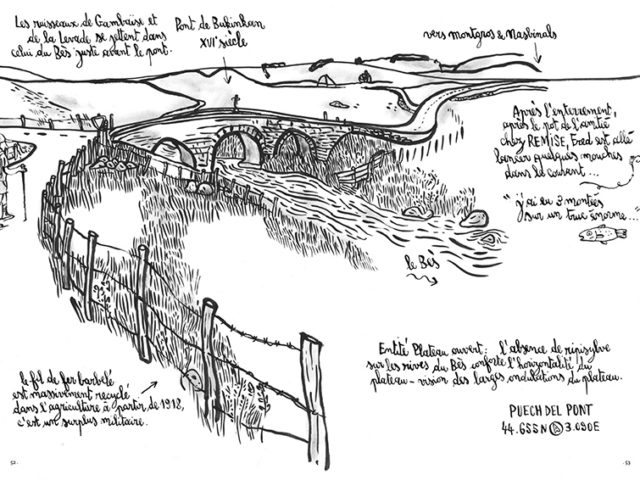 Les ruisseaux de Gambaïse et
de la Levade se jettent dans
celui du Bès juste avant le pont.
Pont de Bukinkan
XVIe siècle
vers montgros & Nasbinals
Après l'enterrement,
après le pot de l'amitié
chez REMISE, Fred est allé
lancer quelques mouches
dans le courant...
"j'ai eu 3 montées
sur un truc énorme..."
le Bès
le fil de fer barbelé
est massivement recyclé
dans l'agriculture à partir de 1918,
c'est un surplus militaire.
Entité Plateau ouvert : l'absence de ripisylve
sur les rives du Bès conforte l'horizontalité du
plateau - vision des larges ondulations du plateau.
PUECH DEL PONT
44.655N 3.090E
52.
.53